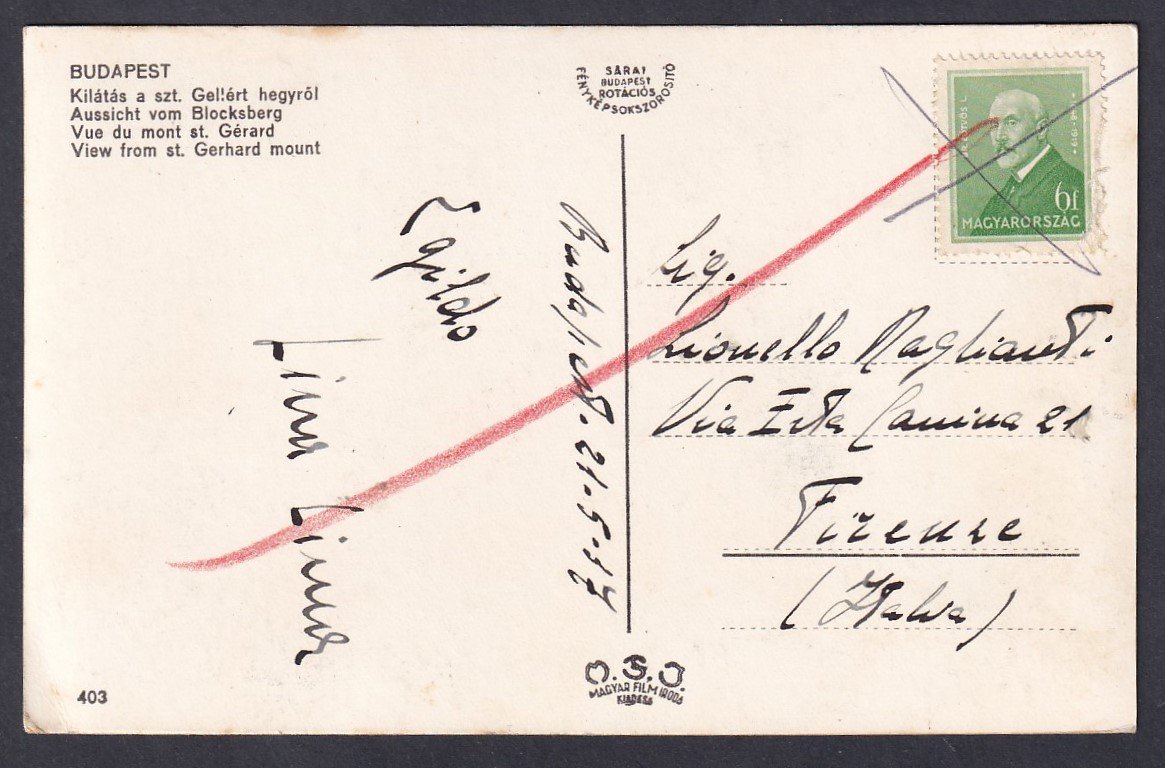 BUDAPEST
Kilátás a szt. Gellért hegyről
Aussicht vom Blocksberg
Vue du mont st. Gérard
View from st. Gerhard mount
SÁRAI
BUDAPEST
ROTÁCIÓS
FÉNYKÉPSOKSZOROSITÓ
6f
MAGYARORSZÁG
Egildo
Budapest. 21-5-37
Sig.
Lionello
Via Erta Canina 21
Firenze
(Italia)
M.F.I.
MAGYAR FILM IRODA
KIADÁSA
403